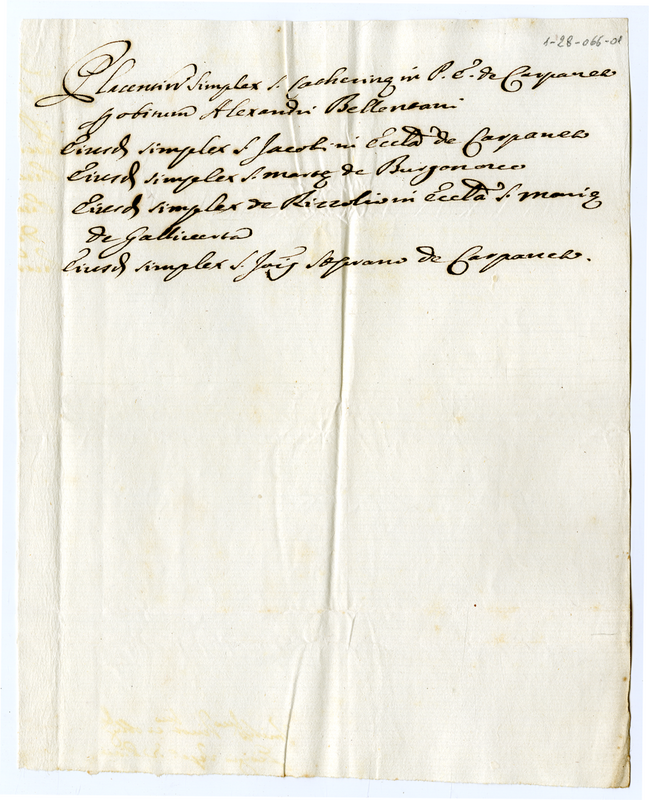 1-28-066-01
Placentin simplex S. Catherinę in P. E. de Carpaneto
Alexandri
Eiusd simplex S. Jacobi in Eccla de Carpaneto
Eiusd simplex S. Martę de Burgonovo
Eiusd simplex de Rizzolio in Eccla S. Marię
de
Eiusd simplex S. Jois de Carpaneto.